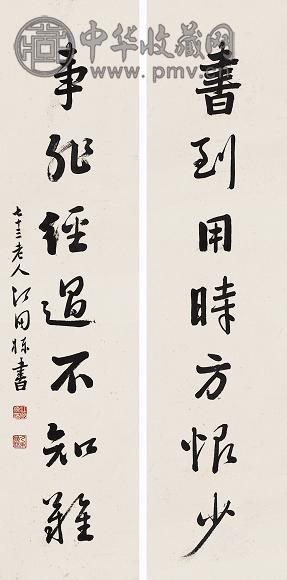 中华收藏网
www.pmv.cn
書到用時方恨少
事非經過不知難
七十三老人江同楝書